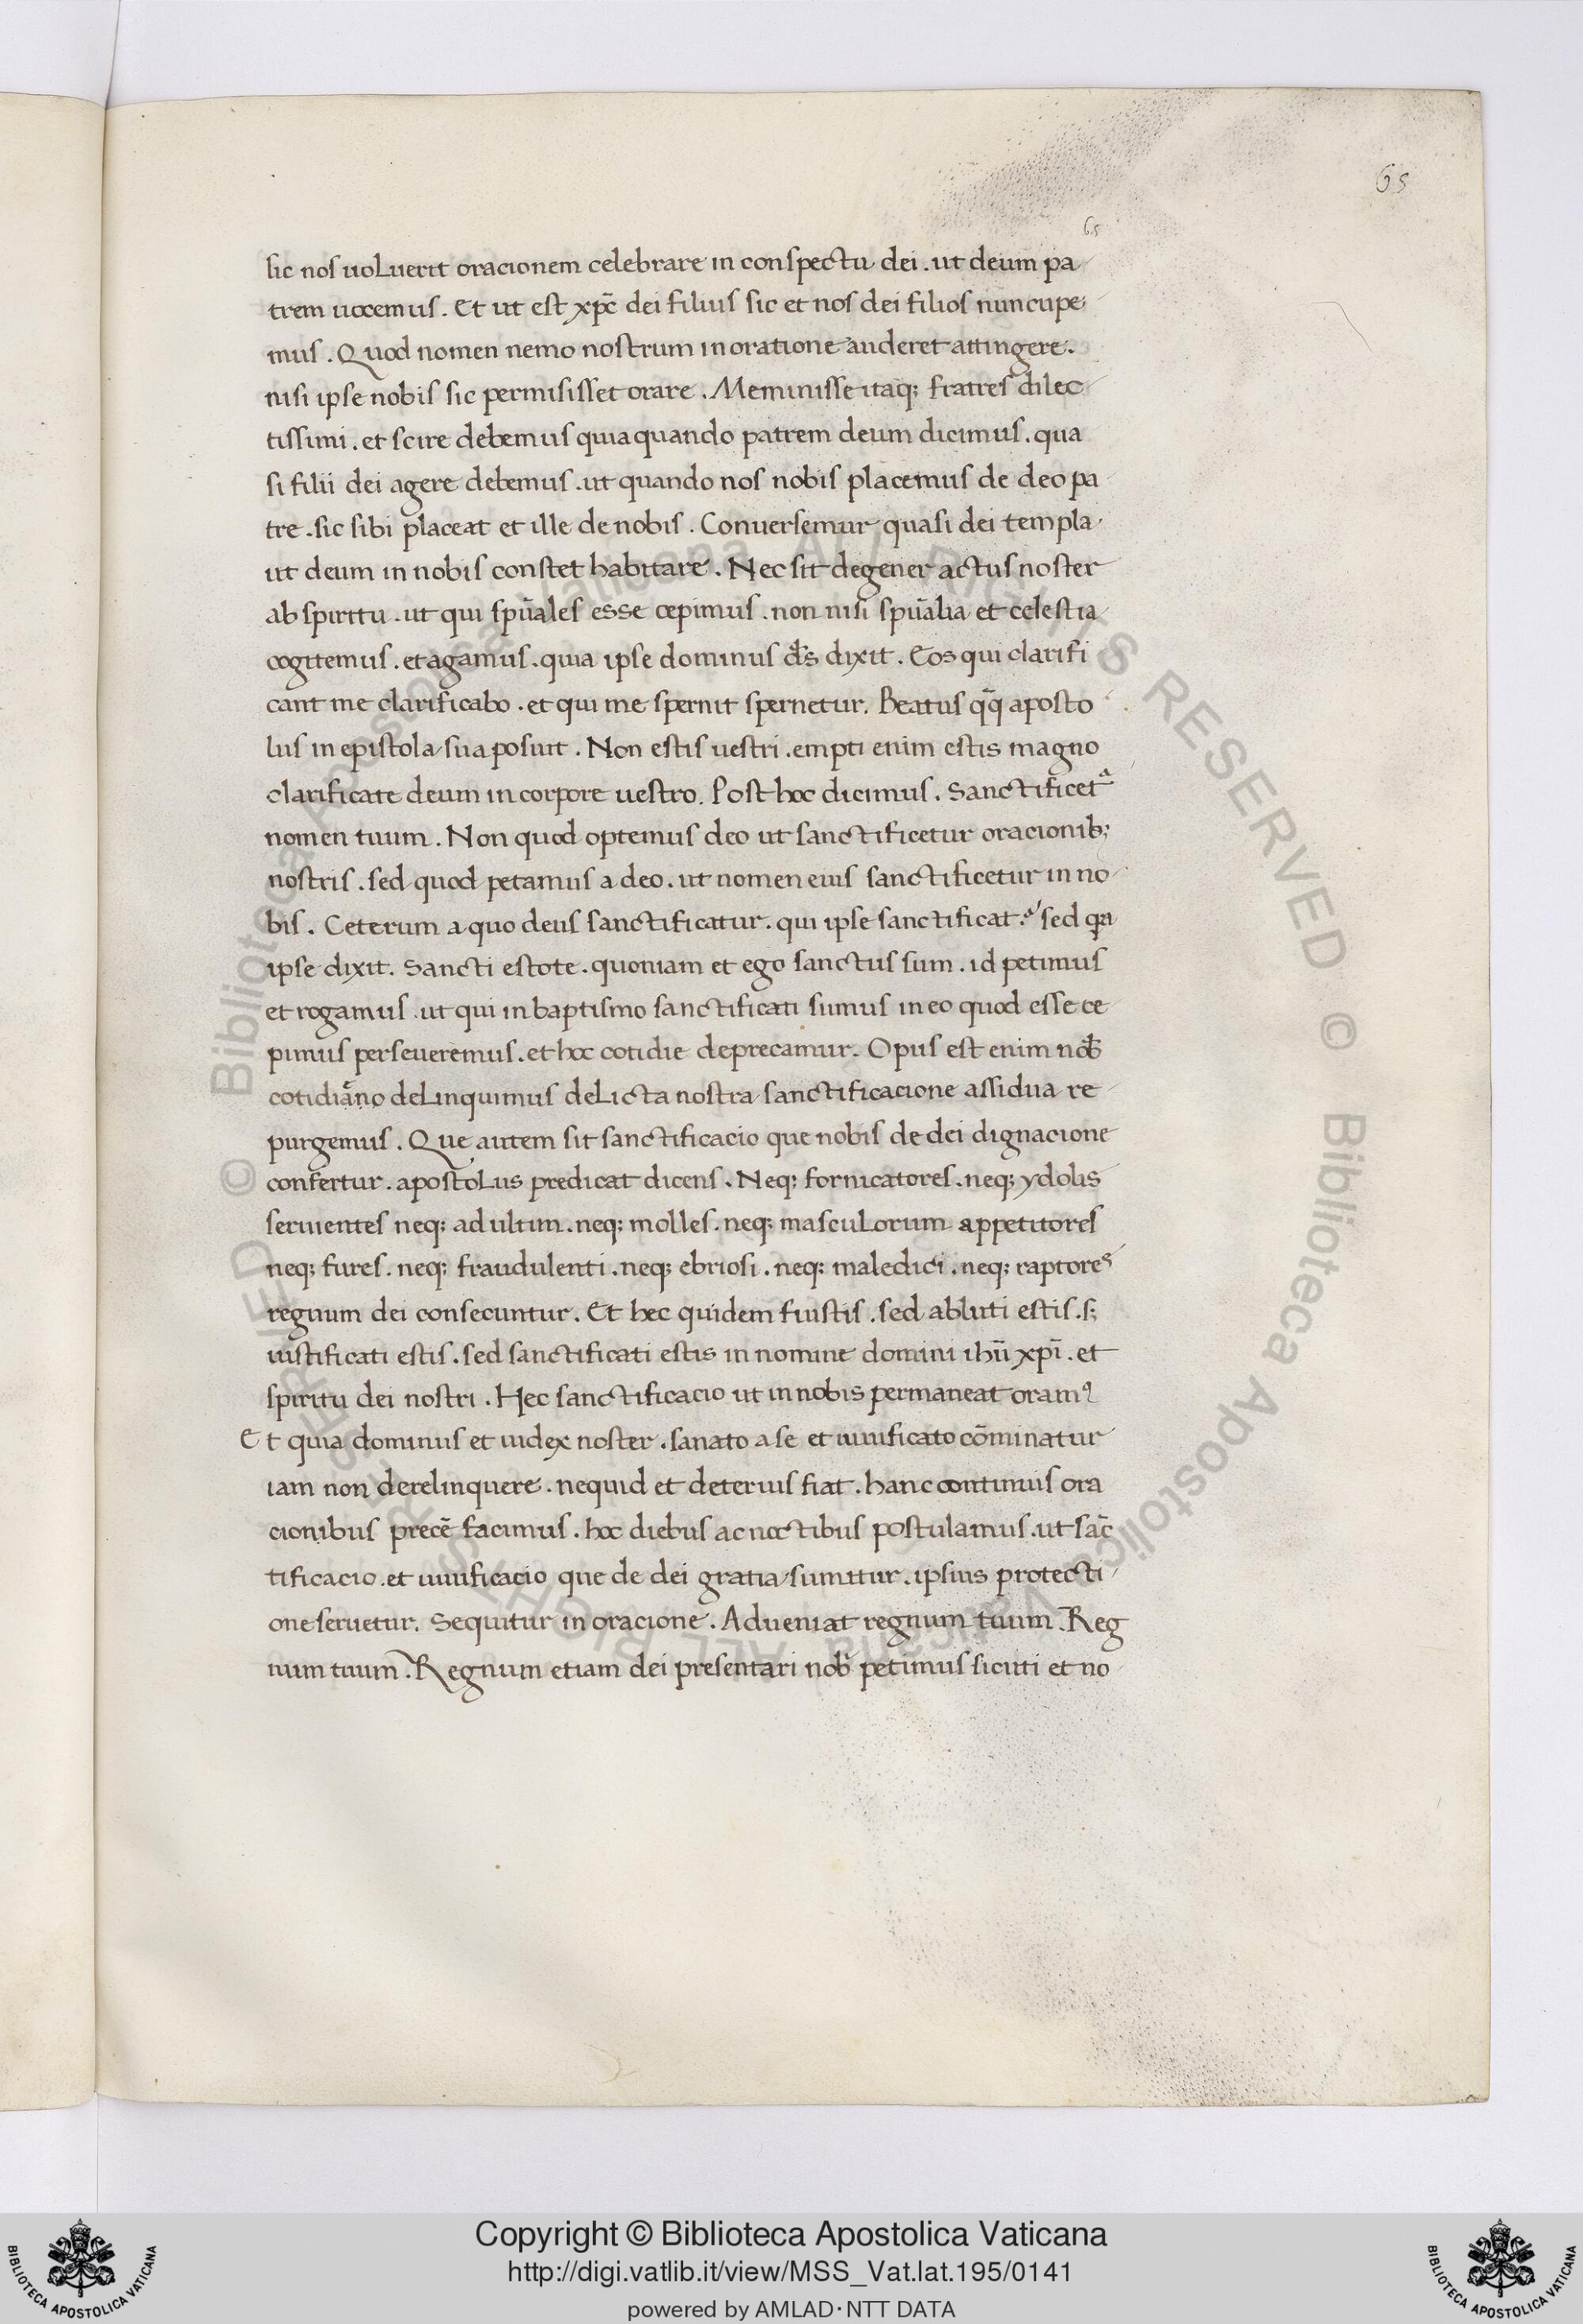 65
65
sic nos uoluerit oracionem celebrare in conspectu dei . ut deum pa
trem uocemus . Et ut est xp̄c dei filius sic et nos dei filios nuncupe
mus . Quod nomen nemo nostrum in oratione auderet attingere .
nisi ipse nobis sic permisisset orare . Meminisse itaq; fratres dilec
tissimi . et scire debemus quia quando patrem deum dicimus . qua
si filii dei agere debemus . ut quando nos nobis placemus de deo pa
tre . sic sibi placeat et ille de nobis . Conuersemur quasi dei templa
ut deum in nobis constet habitare . Nec sit degener actus noster
ab spiritu . ut qui spūales esse cepimus . non nisi spūalia et celestia
cogitemus . et agamus . quia ipse dominus d̄s dixit . Eos qui clarifi
cant me clarificabo . et qui me spernit spernetur . Beatus q̄q aposto
lus in epistola sua posuit . Non estis uestri . empti enim estis magno
clarificate deum in corpore uestro . Post hoc dicimus . Sanctificet᷑
nomen tuum . Non quod optemus deo ut sanctificetur oracionib;
nostris . sed quod petamus a deo . ut nomen eius sanctificetur in no
bis . Ceterum a quo deus sanctificatur . qui ipse sanctificat . sed qa
ipse dixit . Sancti estote . quoniam et ego sanctus sum . id petimus
et rogamus . ut qui in baptismo sanctificati sumus in eo quod esse ce
pimus perseueremus . et hoc cotidie deprecamur . Opus est enim nob̄
cotidiāno delinquimus delicta nostra sanctificacione assidua re
purgemus . Que autem sit sanctificacio que nobis de dei dignacione
confertur . apostolus predicat dicens . Neq; fornicatores . neq; ydolis
seruientes neq; adultim . neq; molles . neq; masculorum appetitores
neq; fures . neq; fraudulenti . neq; ebriosi . neq; maledici . neq; raptores
regnum dei consecuntur . Et hec quidem fuistis . sed abluti estis . s;
iustificati estis . sed sanctificati estis in nomine domini ihū xpī . et
spiritu dei nostri . Hec sanctificacio ut in nobis permaneat oramꝰ
Et quia dominus et iudex noster . sanato a se et uiuificato cōminatur
iam non derelinquere . nequid et deterius fiat . hanc continuis ora
cionibus precē facimus . hoc diebus ac noctibus postulamus . ut sāc
tificacio . et uiuificacio que de dei gratia sumitur . ipsius protecti
one seruetur . Sequitur in oracione . Adueniat regnum tuum . Reg
num tuum . Regnum etiam dei presentari nob̄ petimus sicuti et no
© Biblioteca Apostolica Vaticana ALL RIGHTS RESERVED © Biblioteca Apostolica Vaticana ALL RIGHTS RESERVED
Copyright © Biblioteca Apostolica Vaticana
http://digi.vatlib.it/view/MSS_Vat.lat.195/0141
powered by AMLAD·NTT DATA
BIBLIOTECA APOSTOLICA VATICANA
BIBLIOTECA APOSTOLICA VATICANA